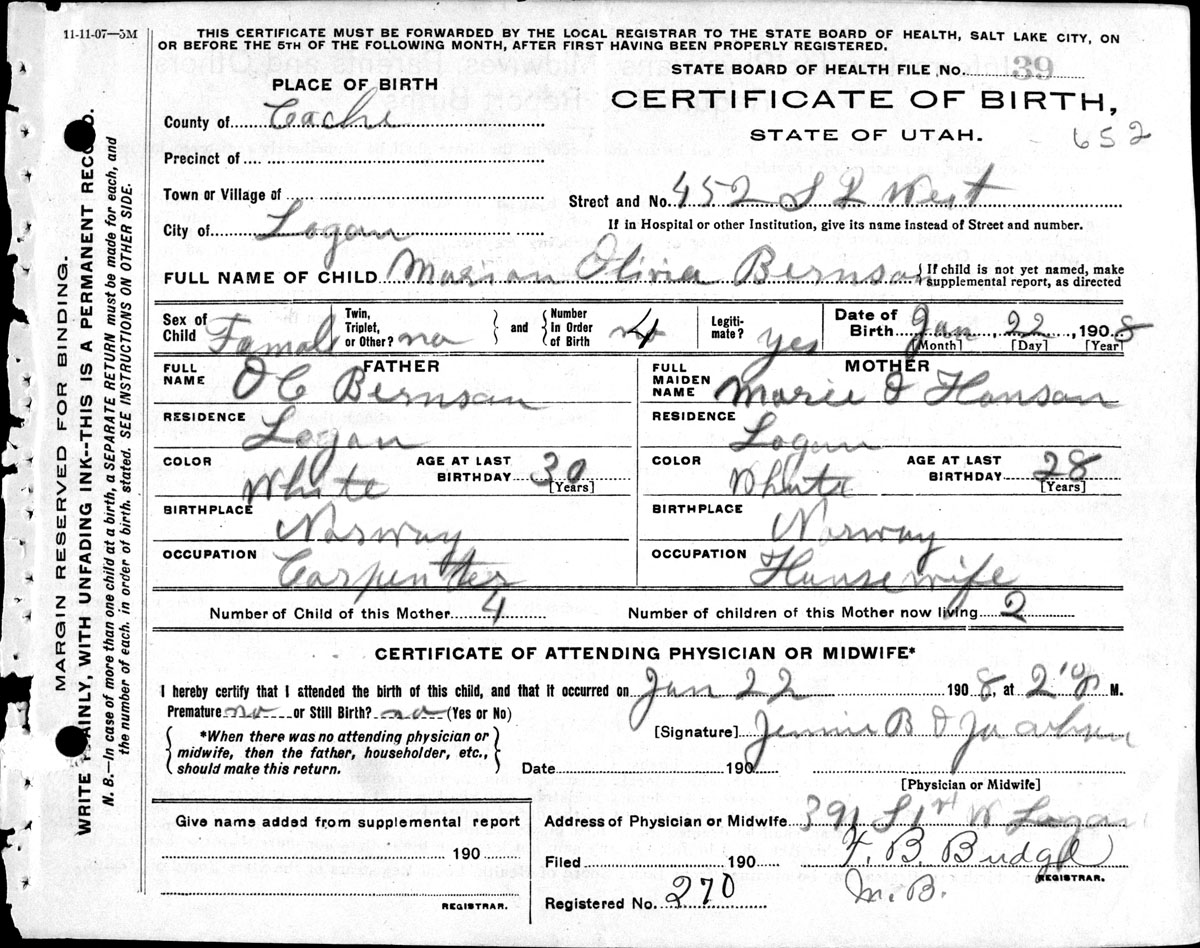 11-11-07—5M
THIS CERTIFICATE MUST BE FORWARDED BY THE LOCAL REGISTRAR TO THE STATE BOARD OF HEALTH, SALT LAKE CITY, ON
OR BEFORE THE 5TH OF THE FOLLOWING MONTH, AFTER FIRST HAVING BEEN PROPERLY REGISTERED.
STATE BOARD OF HEALTH FILE No. 39
PLACE OF BIRTH
CERTIFICATE OF BIRTH,
County of Cache
STATE OF UTAH.
652
Precinct of
Town or Village of
Street and No. 452 S 2 West
City of Logan
If in Hospital or other Institution, give its name instead of Street and number.
FULL NAME OF CHILD Marian Olivia Bernson { If child is not yet named, make
supplemental report, as directed
Sex of Child Famal Twin, Triplet, or Other? no } and { Number In Order of Birth 4 Legiti-mate? yes Date of Birth Jan 22, 1908
[Month] [Day] [Year]
FATHER
FULL NAME O C Bernson
RESIDENCE Logan
COLOR White AGE AT LAST BIRTHDAY 30 [Years]
BIRTHPLACE Norway
OCCUPATION Carpenter
MOTHER
FULL MAIDEN NAME Marie O Hanson
RESIDENCE Logan
COLOR White AGE AT LAST BIRTHDAY 28 [Years]
BIRTHPLACE Norway
OCCUPATION Housewife
Number of Child of this Mother 4 Number of children of this Mother now living 2
CERTIFICATE OF ATTENDING PHYSICIAN OR MIDWIFE*
I hereby certify that I attended the birth of this child, and that it occurred on Jan 22 1908, at 2 P M.
Premature no or Still Birth? no (Yes or No)
{ *When there was no attending physician or
midwife, then the father, householder, etc.,
should make this return. }
[Signature] Jennie B
Date 190
[Physician or Midwife]
Give name added from supplemental report
190
REGISTRAR.
Address of Physician or Midwife 391 S 1st W Logan
Filed 190 F. B. Budge
REGISTRAR.
Registered No. 270 M. B.
MARGIN RESERVED FOR BINDING.
WRITE PLAINLY, WITH UNFADING INK--THIS IS A PERMANENT RECORD.
N. B.—In case of more than one child at a birth, a SEPARATE RETURN must be made for each, and
the number of each, in order of birth, stated. SEE INSTRUCTIONS ON OTHER SIDE.